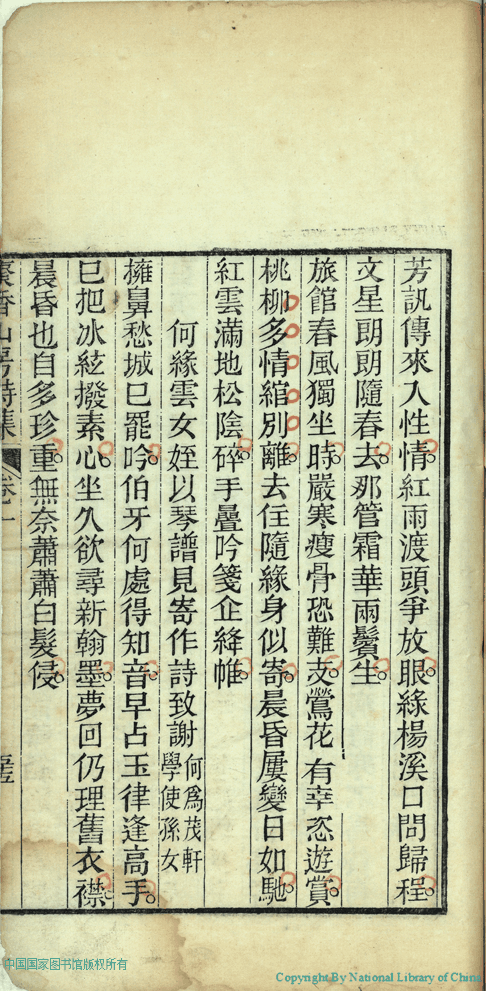 芳訊傳來入性情紅雨渡頭爭放眼綠楊溪口問歸程
文星朗朗隨春去那管霜華兩鬢生
旅館春風獨坐時嚴寒瘦骨恐難支鶯花有幸恣遊賞
桃柳多情綰別離去住隨緣身似寄晨昏屢變日如馳
紅雲滿地松陰碎手疊吟箋企絳帷
何緣雲女姪以琴譜見寄作詩致謝何爲茂軒學使孫女
擁鼻愁城已罷吟伯牙何處得知音早占玉律逢高手
已把冰絃撥素心坐久欲尋新翰墨夢回仍理舊衣襟
晨昏也自多珍重無奈蕭蕭白髮侵
香山房詩集 卷一
中国国家图书馆版权所有
Copyright By National Library of China